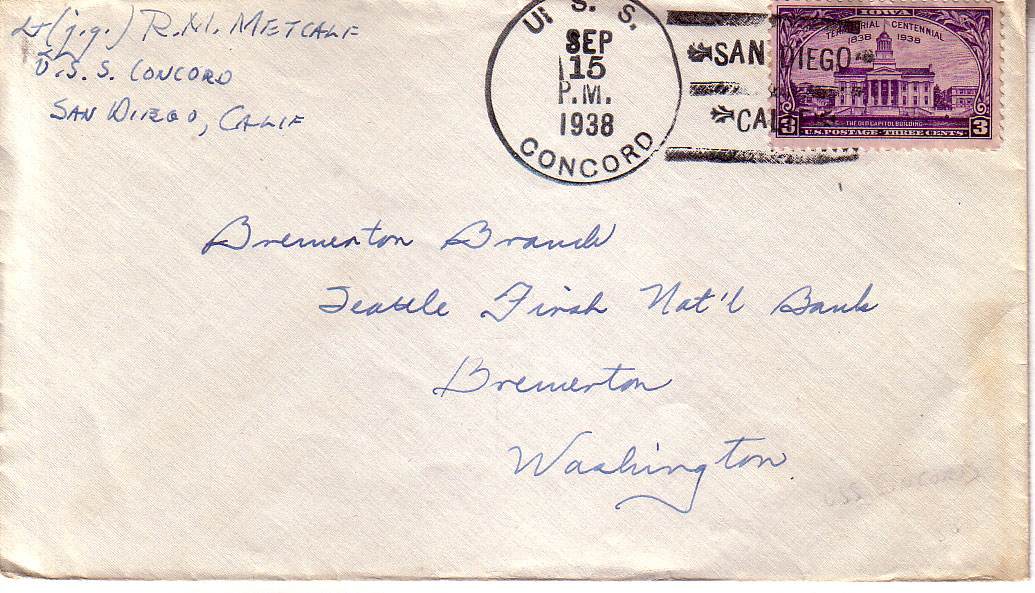 Lt (j.g.) R.M. METCALF
U.S.S. CONCORD
SAN DIEGO, CALIF
U. S. S.
SEP
15
P.M.
1938
CONCORD
SAN DIEGO
CALIF
IOWA
TERRITORIAL CENTENNIAL
1838 1938
THE OLD CAPITOL BUILDING
3 U.S. POSTAGE - THREE CENTS 3
Bremerton Branch
Seattle First Nat'l Bank
Bremerton
Washington
USS CONCORD